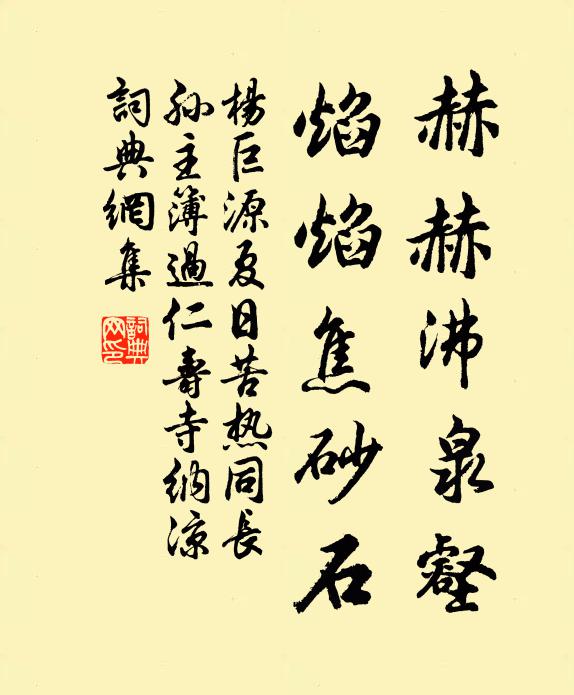 赫赫沸泉壑
焰焰焦砂石
楊巨源夏日苦热同長
孙主簿過仁壽寺纳凉
詞典網集
詞典
网印